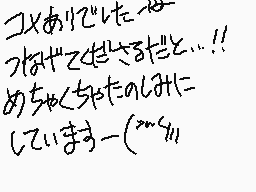 コメありでした
つなげてくださるだと…!!
めちゃくちゃたのしみに
しています—(